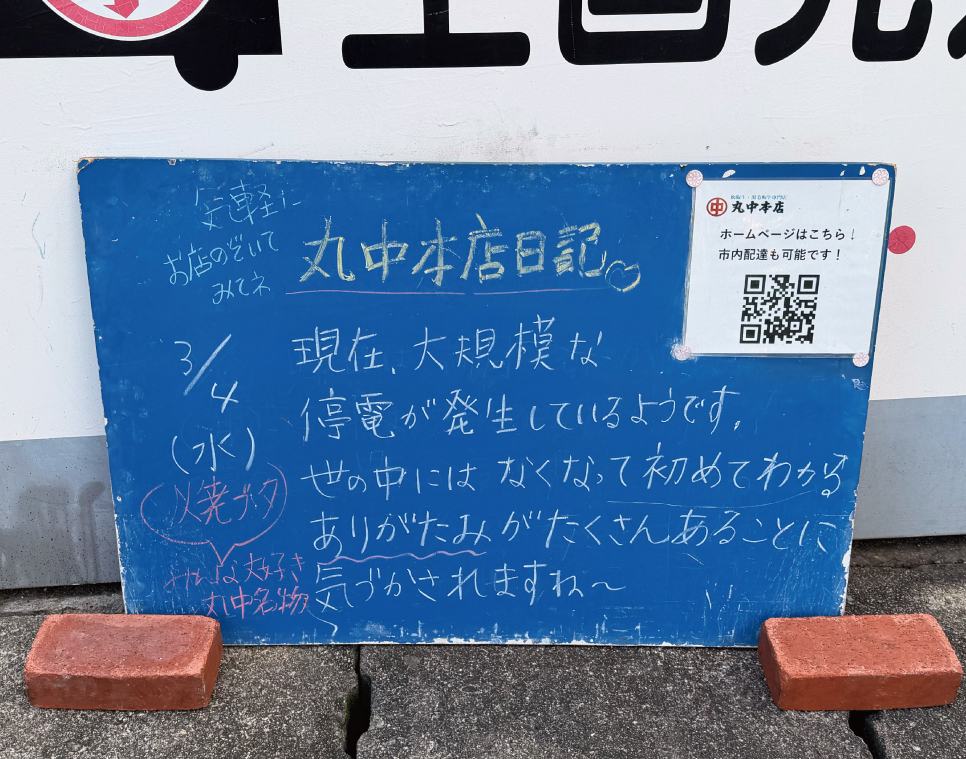 気軽に
お店のぞいて
みてネ
丸中本店日記
3/4
(水)
現在、大規模な
停電が発生しているようです。
世の中にはなくなって初めてわかる
ありがたみがたくさんあることに
気づかされますね～
焼ブタ
みんな大好き
丸中名物
丸中本店
ホームページはこちら！
市内配達も可能です！